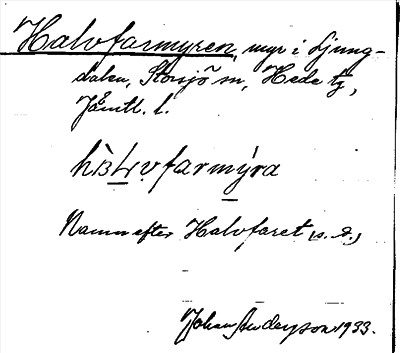 Halvfarmyren, myr i Ljung-
dalen, Storsjö sn, Hede tg,
Jämtl. l.
Namn efter Halvfaret (s. d.)
Johan Anderson 1933.